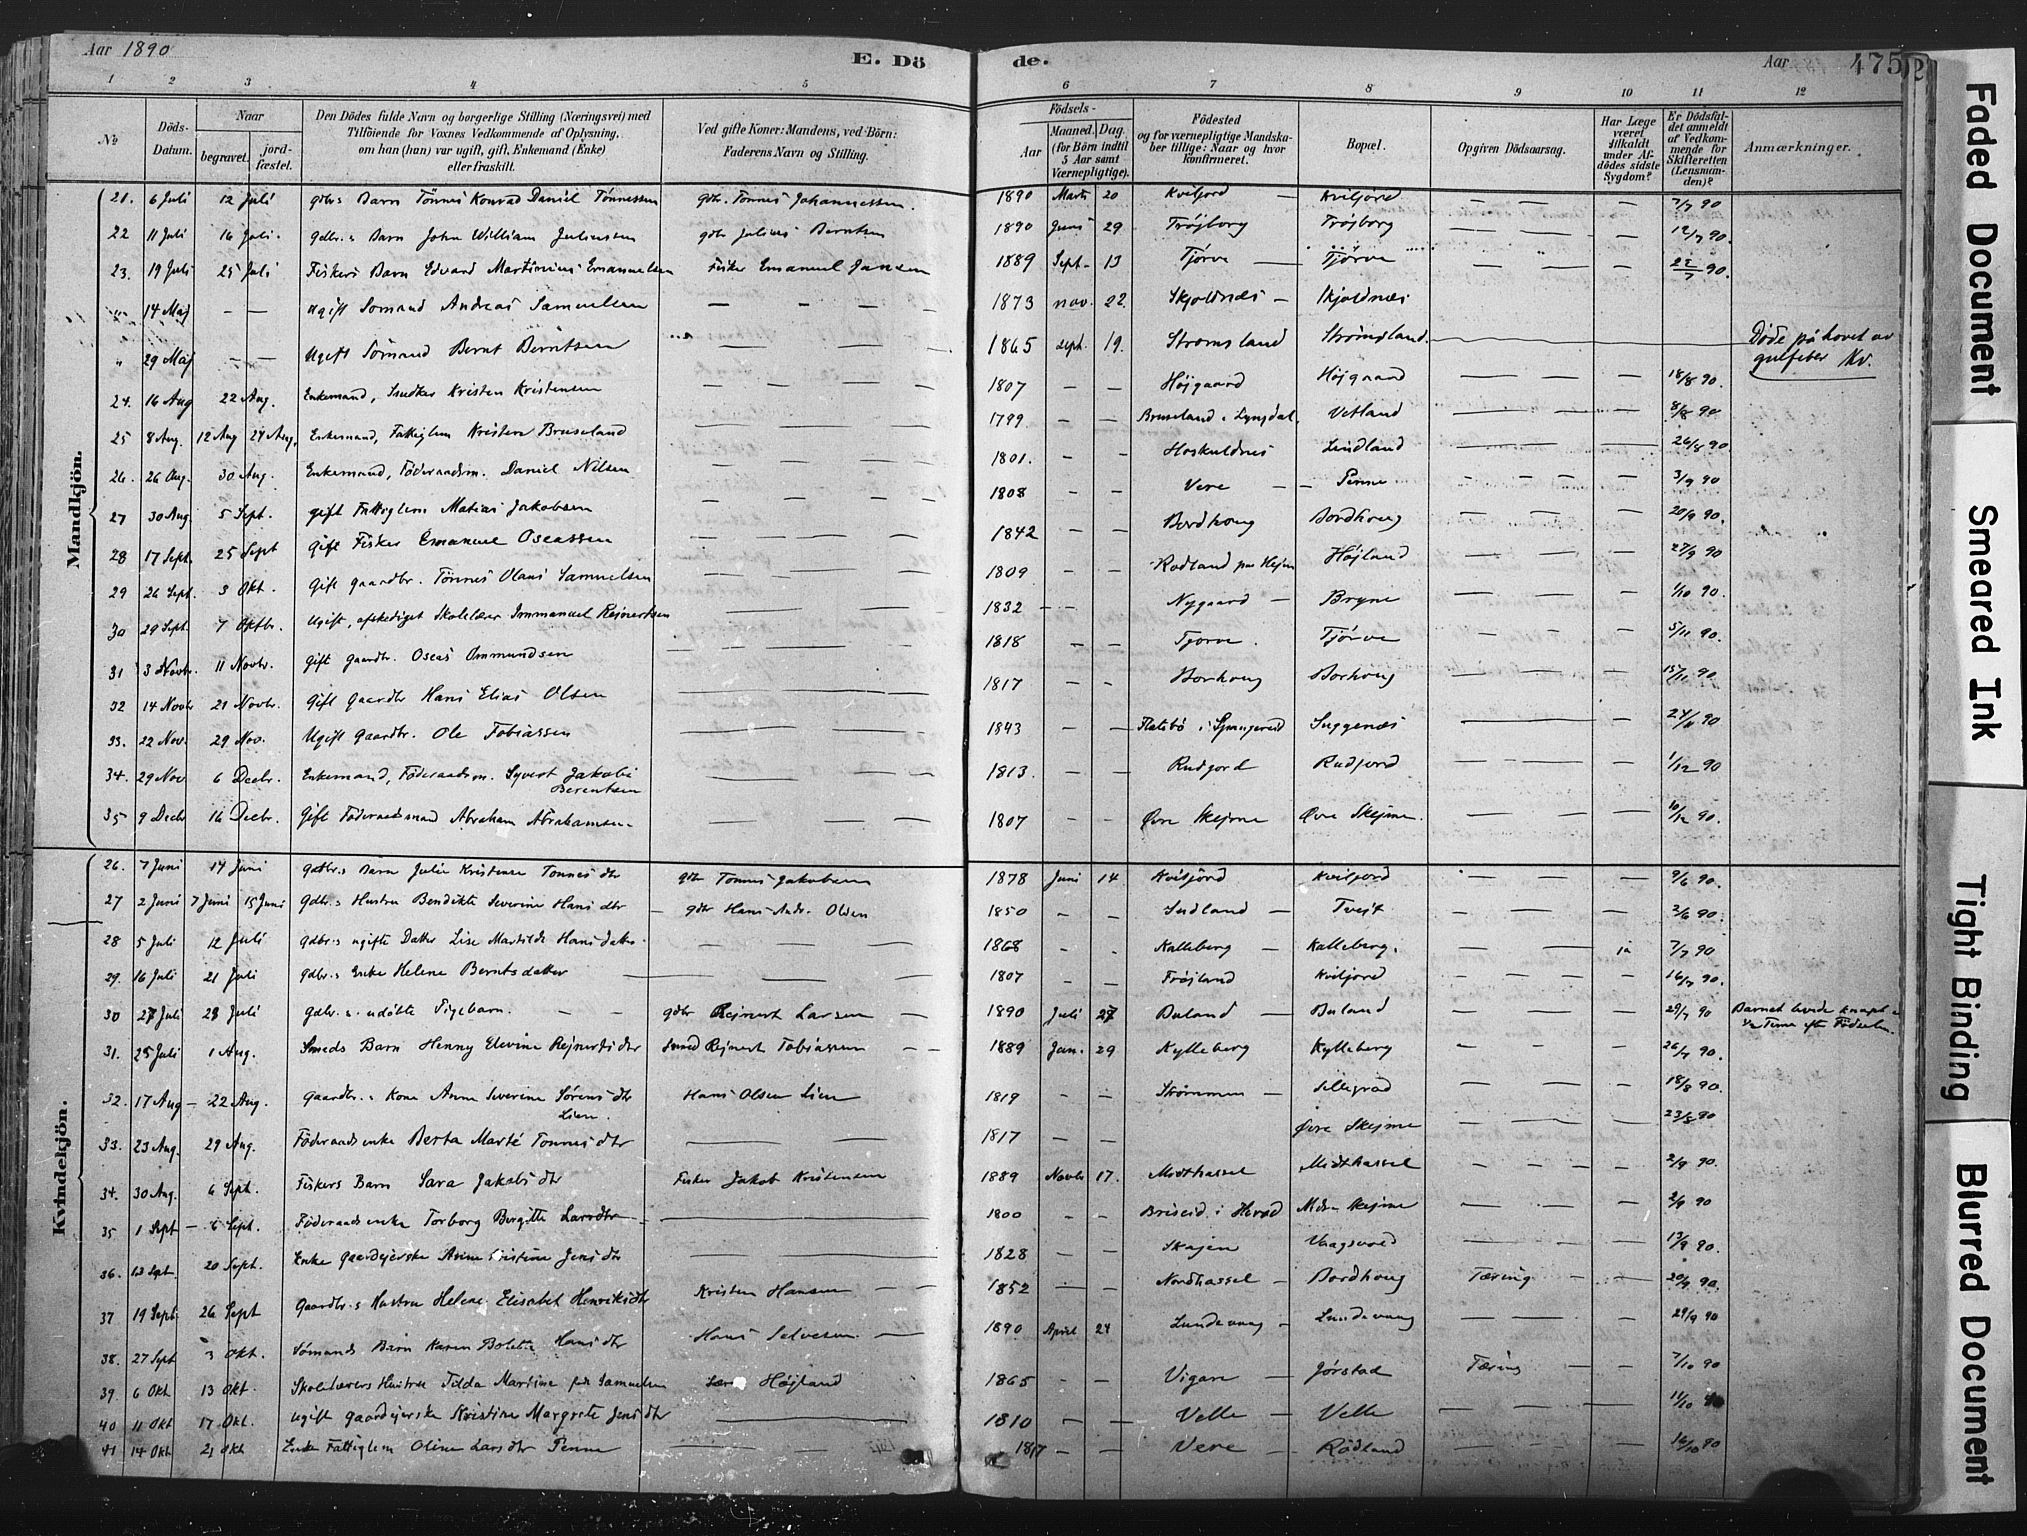 Aar 1890 E. Dö
1 2 3 4 5
№ Döds-Datum. Naar begravet. jord-fæstet. Den Dödes fulde Navn og borgerlige Stilling (Næringsvei) med Tilföiende for Voxnes Vedkommende af Oplysning, om han (hun) var ugift, gift, Enkemand (Enke) eller fraskilt. Ved gifte Koner: Mandens, ved Börn: Faderens Navn og Stilling.
de. Aar 475
6 7 8 9 10 11 12
Födsels- Aar Maaned. Dag. (for Börn indtil 5 Aar samt Værnepligtige). Födested og for værnepligtige Mandska-ber tillige: Naar og hvor konfirmeret. Bopæl. Opgiven Dödsaarsag. Har Læge været tilkaldt under Af-dödes sidste Sygdom? Er Dödsfal-det anmeldt af Vedkom-mende for Skifteretten (Lensman-den)? Anmærkninger.
Mandkjön.
21. 6 Juli 12 Juli gdbr.s Barn Tönnes Konrad Daniel Tönnessen gdbr. Tönnes Johannessen. 1890 Marts 20 Kviljord — Kviljord — — — 7/7 90
22 11 Juli 16 Juli. gdbr.s Barn John William Juliussen gdbr Julius Berntsen 1890 Juni 29 Tröjborg Tröjborg — — — 12/7 90.
23. 19 Juli 25 Juli Fiskers Barn Edvard Martinius Emanuelsen Fisker Emanuel Jansen 1889 Sept. 13 Tjörve — Tjörve — — — 22/7 90.
" 14 Maj — — Ugift Sömand Andreas Samuelsen — — — 1873 nov. 22. Skjoldnæs — Skjoldnæs
" 29 Maj — — Ugift Sömand Bernt Berntsen — — — 1865 sept. 19. Strömsland Strömsland. Döde på havet av
gulfeber Kv.
24. 16 Aug 22 Aug. Enkemand, Snedker Kristen Kristensen — — — 1807 — — Höjgaard Höjgaard — — — 18/8 90.
25 8 Aug. 12 Aug 24 Aug. Enkemand, Fattiglem Kristen Bruseland — — — 1799 — — Bruseland i Lyngdal. Vetland — — — 8/8 90
26. 26 Aug. 30 Aug. Enkemand, Föderaadsm. Daniel Nilsen — — — 1801. — — Hoskuldnes Lindland — — — 26/8 90
27 30 Aug. 5 Sept. gift Fattiglem Matias Jakobsen — — — 1808 — — Vere — — Penne — — — 3/9 90
28 17 Sept. 25 Sept gift Fisker Emanuel Oseassen — — — 1842 — — Bordhoug Bordhoug — — — 20/9 90.
29 26 Sept. 3 Okt. gift gaardbr. Tönnes Olaus Samuelsen — — — 1809 — — Rödland Höjland — — — 27/9 90
30 29 Sept. 7 Oktbr. Ugift, afskediget Skolelærer Immanuel Rejnertsen 1832 — — Nygaard — Bryne — — — 1/10 90.
31 3 Novbr. 11 Novbr. Gift gaardbr. Oseas Ommundsen — — — 1818 — — Tjörve. Tjörve — — — 5/11 90.
32 14 Novbr 21 Novbr. Gift gaardbr Hans Elias Olsen — — — 1817 — — Borhoug Borhoug — — — 15/11 90
33. 22 Nov. 29 Nov. Ugift gaardbr. Ole Tobiassen — — — 1843 — — i Spangereid Suggenæs — — — 24/11 90
34. 29 Nov 6 Decbr. Enkemand, Föderaadsm. Syvert Jakobi — — — 1813. — — Rudjord Rudjord — — — 1/12 90
Berentsen
35 9 Decbr 16 Decbr. Gift Föderaadsmand Abraham Abrahamsen — — — 1807 — — Övre Skejme Övre Skejme. — — — 10/12 90.
Kvindekjön.
26. 7 Juni 14 Juni gdbr.s Barn Julie Kristense Tönnes dtr gdbr Tönnes Jakobsen 1878 Juni 14 Kviljord Kviljord — — — 9/6 90.
27 2 Juni 7 Juni 15 Juni gdbr.s Hustru Bendikte Severine Hans dtr — gdbr Hans Andr. Olsen 1850 — — Indland — Tvejt — — — 3/6 90.
28 5 Juli 12 Juli gdbr.s ugifte Datter Lise Martilde Hans datter — — — 1868 — — Kalleberg — Kalleberg. — — ja 7/7 90
29. 16 Juli 21 Juli gdbr.s Enke Helene Berntsdatter — — — 1807 Fröjland Kviljord — — — 16/7 90.
30 27 Juli 28 Juli gdbr.s udöbte Pigebarn. — — gdbr Rejnert Larsen — — 1890 Juli 27 Buland — Buland — — — 29/7 90 Barnet levde knapt
½ Time eft. Födselen.
31. 25 Juli 1 Aug. Smeds Barn Henny Elevine Rejnerts dtr Smed Rejnert Tobiassen — — 1889 Jan. 29 Kylleberg Kylleberg — — — 26/7 90.
32. 17 Aug — 22 Aug. gaardbr.s Kone Anne Severine Sörens dtr Hans Olsen Lien — 1819 — — Strömmen — — — — 18/8 90.
Lien.
33. 23 Aug 29 Aug. Föderaadsenke Berta Marte Tönnes dtr — — — 1817 — — Övre Skejme — — — 23/8 90
34. 30 Aug. 6 Sept. Fiskers Barn Sara Jakobs dtr Fisker Jakob Kristensen 1889 Novbr 17. Midthassel Midthassel — — — 2/9 90.
35 1 Sept — 6 Sept. Föderaadsenke Torborg Bergitte Larsdtr 1800 — — Briseid i Herad Skejme — — — 2/9 90
36. 13 Sept. 20 Sept. Enke gaardejerske Anne Kristine Jens dtr 1828 — — Skajen Vaagsvold — — — 13/9 90.
37 19 Sept. 26 Sept gaardbr.s Hustru Helene Elisabet Henriksdtr Kristen Hansen 1852 — — Nordhassel — Bordhoug Tæring — — 20/9 90.
38. 27 Sept 3 Okt. Sömands Barn Karen Bolette Hans dtr Hans Salvesen — 1890 April 24 Lundevaag — Lundevaag 29/9 90
39. 6 Okt 13 Okt. Skolelærers Hustru Tilda Martine Samuelsen Höjland 1865 — — Vigan — Jörstad Tæring — — 7/10 90
40 11 Okt 17 Okt. ugift gaardejerske Kristine Margrete Jens dtr 1810 — — Velle — Velle 11/10
41 14 Okt 21 Okt Enke Fattiglem Oline Larsdtr Penne — — 1817 — — Vere — Rödland — — — 16/10 90
Faded Document
Smeared Ink
Tight Binding
Blurred Document